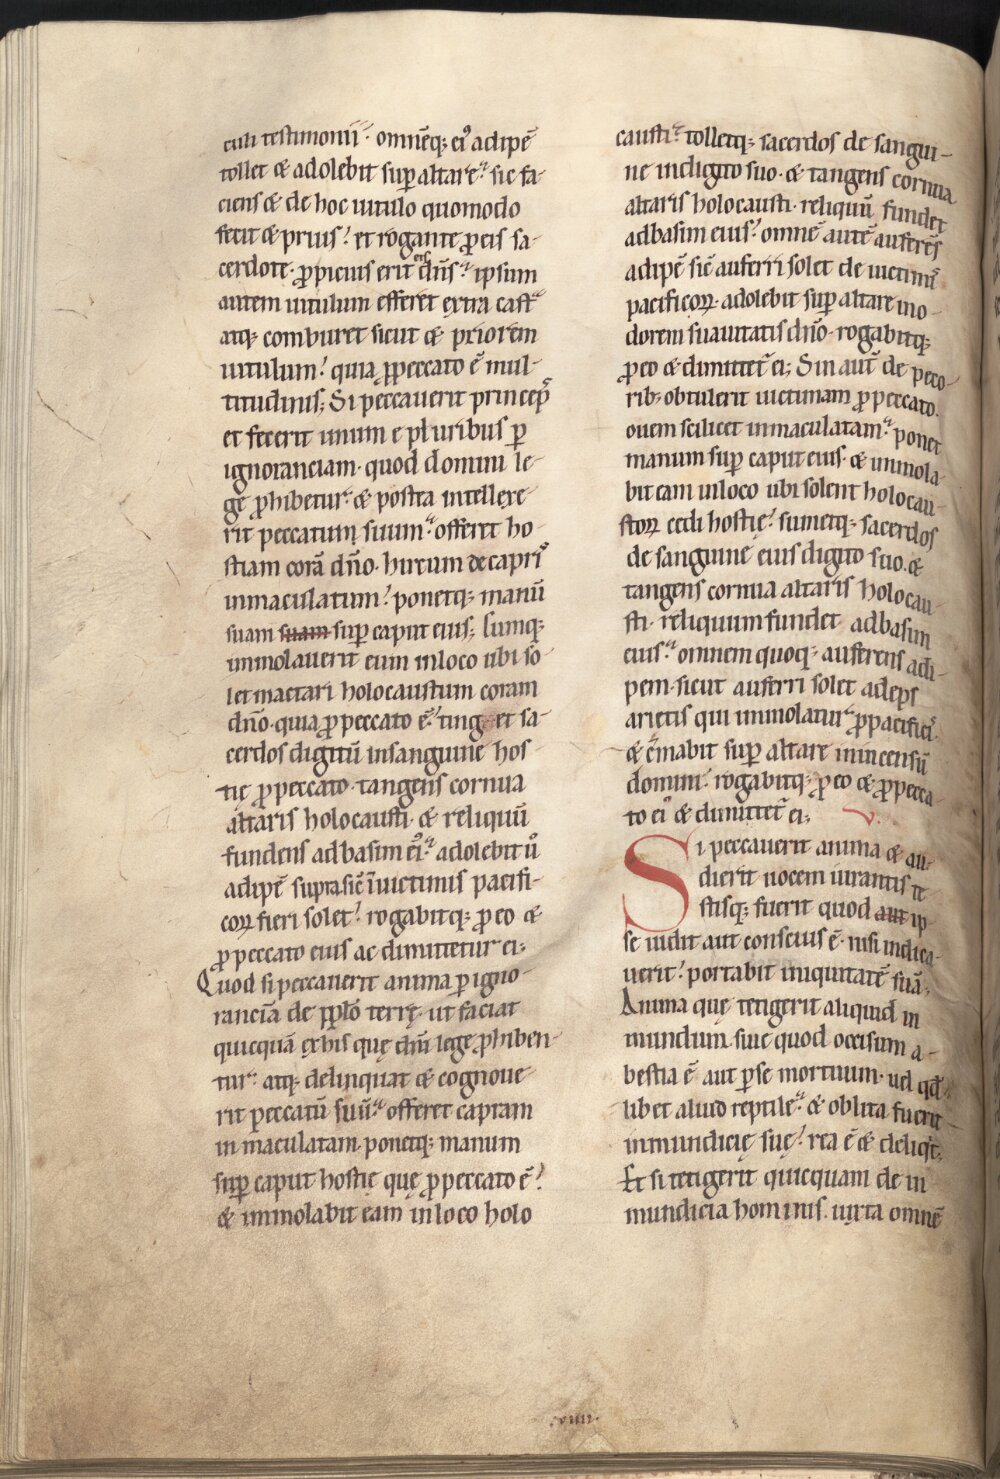 culi testimonii. omnēq; ei᷒ adipē
tollet & adolebit sup̱ altare. sic fa-
ciens & de hoc uitulo quomodo
fecit & prius. et rogante ꝓ eis sa-
cerdote. ꝓpicius erit eis dn̄s. ipsum
autem uitulum efferet extra cast͛
atq; comburet sicut & priorem
uitulum. quia ꝓ peccato ē mul-
titudinis; Si peccauerit princeps
et fecerit unum e pluribus p̱
ignoranciam. quod domini le-
ge ꝓhibetur. & postea intellexe-
rit peccatum suum. offeret ho-
stiam corā dn̄o. hircum de capris
inmaculatum. ponetq; manū
suam suam sup̱ caput eius; Cumq;
immolauerit eum in loco ubi so-
let mactari holocaustum coram
dn̄o. quia ꝓ peccato ē. ting et sa-
cerdos digitū in sanguine hos-
tię ꝓ peccato. tangens cornua
altaris holocausti. & reliquū
fundens ad basim ei᷒. adolebit ū
adipē supra sic̄ ī uictimis pacifi-
coꝝ fieri solet. rogabitq; ꝓ eo &
ꝓ peccato eius ac dimittetur ei;
Quod si peccauerit anima p̱ igno-
ranciā de pp̄lo terrę. ut faciat
quicquā ex his quę dn̄i lege ꝓhiben-
tur. atq; delinquat & cognoue-
rit peccatū suū. offeret capram
in maculatam. ponetq; manum
sup̱ caput hostię quę ꝓ peccato ē.
& immolabit eam in loco holo
causti. tolletq; sacerdos de sangui-
ne indigito suo. & tangens cornua
altaris holocausti. reliquū fundet
ad basim eius. omnē autē auferēs
adipē sic̄ auferri solet de uictimis
pacificoꝝ. adolebit sup̱ altare in o-
dorem suauitatis dn̄o. rogabitq;
ꝓ eo & dimittet͛ ei; Sin aut̄ de peco-
rib; obtulerit uictimam ꝓ peccato.
ouem scilicet inmaculatam. ponet
manum sup̱ caput eius. & immola-
bit eam in loco ubi solent holocau-
stoꝝ cedi hostię. sumetq; sacerdos
de sanguine eius digito suo. &
tangens cornua altaris holocau-
sti. reliquum fundet ad basim
eius. omnem quoq; auferens adi-
pem. sicut auferri solet adeps
arietis qui immolatur ꝓ pacificis.
& c̄mabit sup̱ altare in incensū
domini. rogabitq; ꝓ eo & ꝓ pecca-
to ei᷒ & dimittet͛ ei; v.
Si peccauerit anima & au-
dierit uocem iurantis te
stisq; fuerit quod aut ip-
se uidit aut conscius ē. nisi indica-
uerit. portabit iniquitatē suā;
Anima quę tetigerit aliquid in
mundum. siue quod occisum a
bestia ē aut p̱ se mortuum. uel qd̄
libet aliud reptile. & oblita fuerit
inmundicię suę. rea ē & deliqt;
Et si tetigerit quicquam de in
mundicia hominis. iuxta omnē
.viiii.